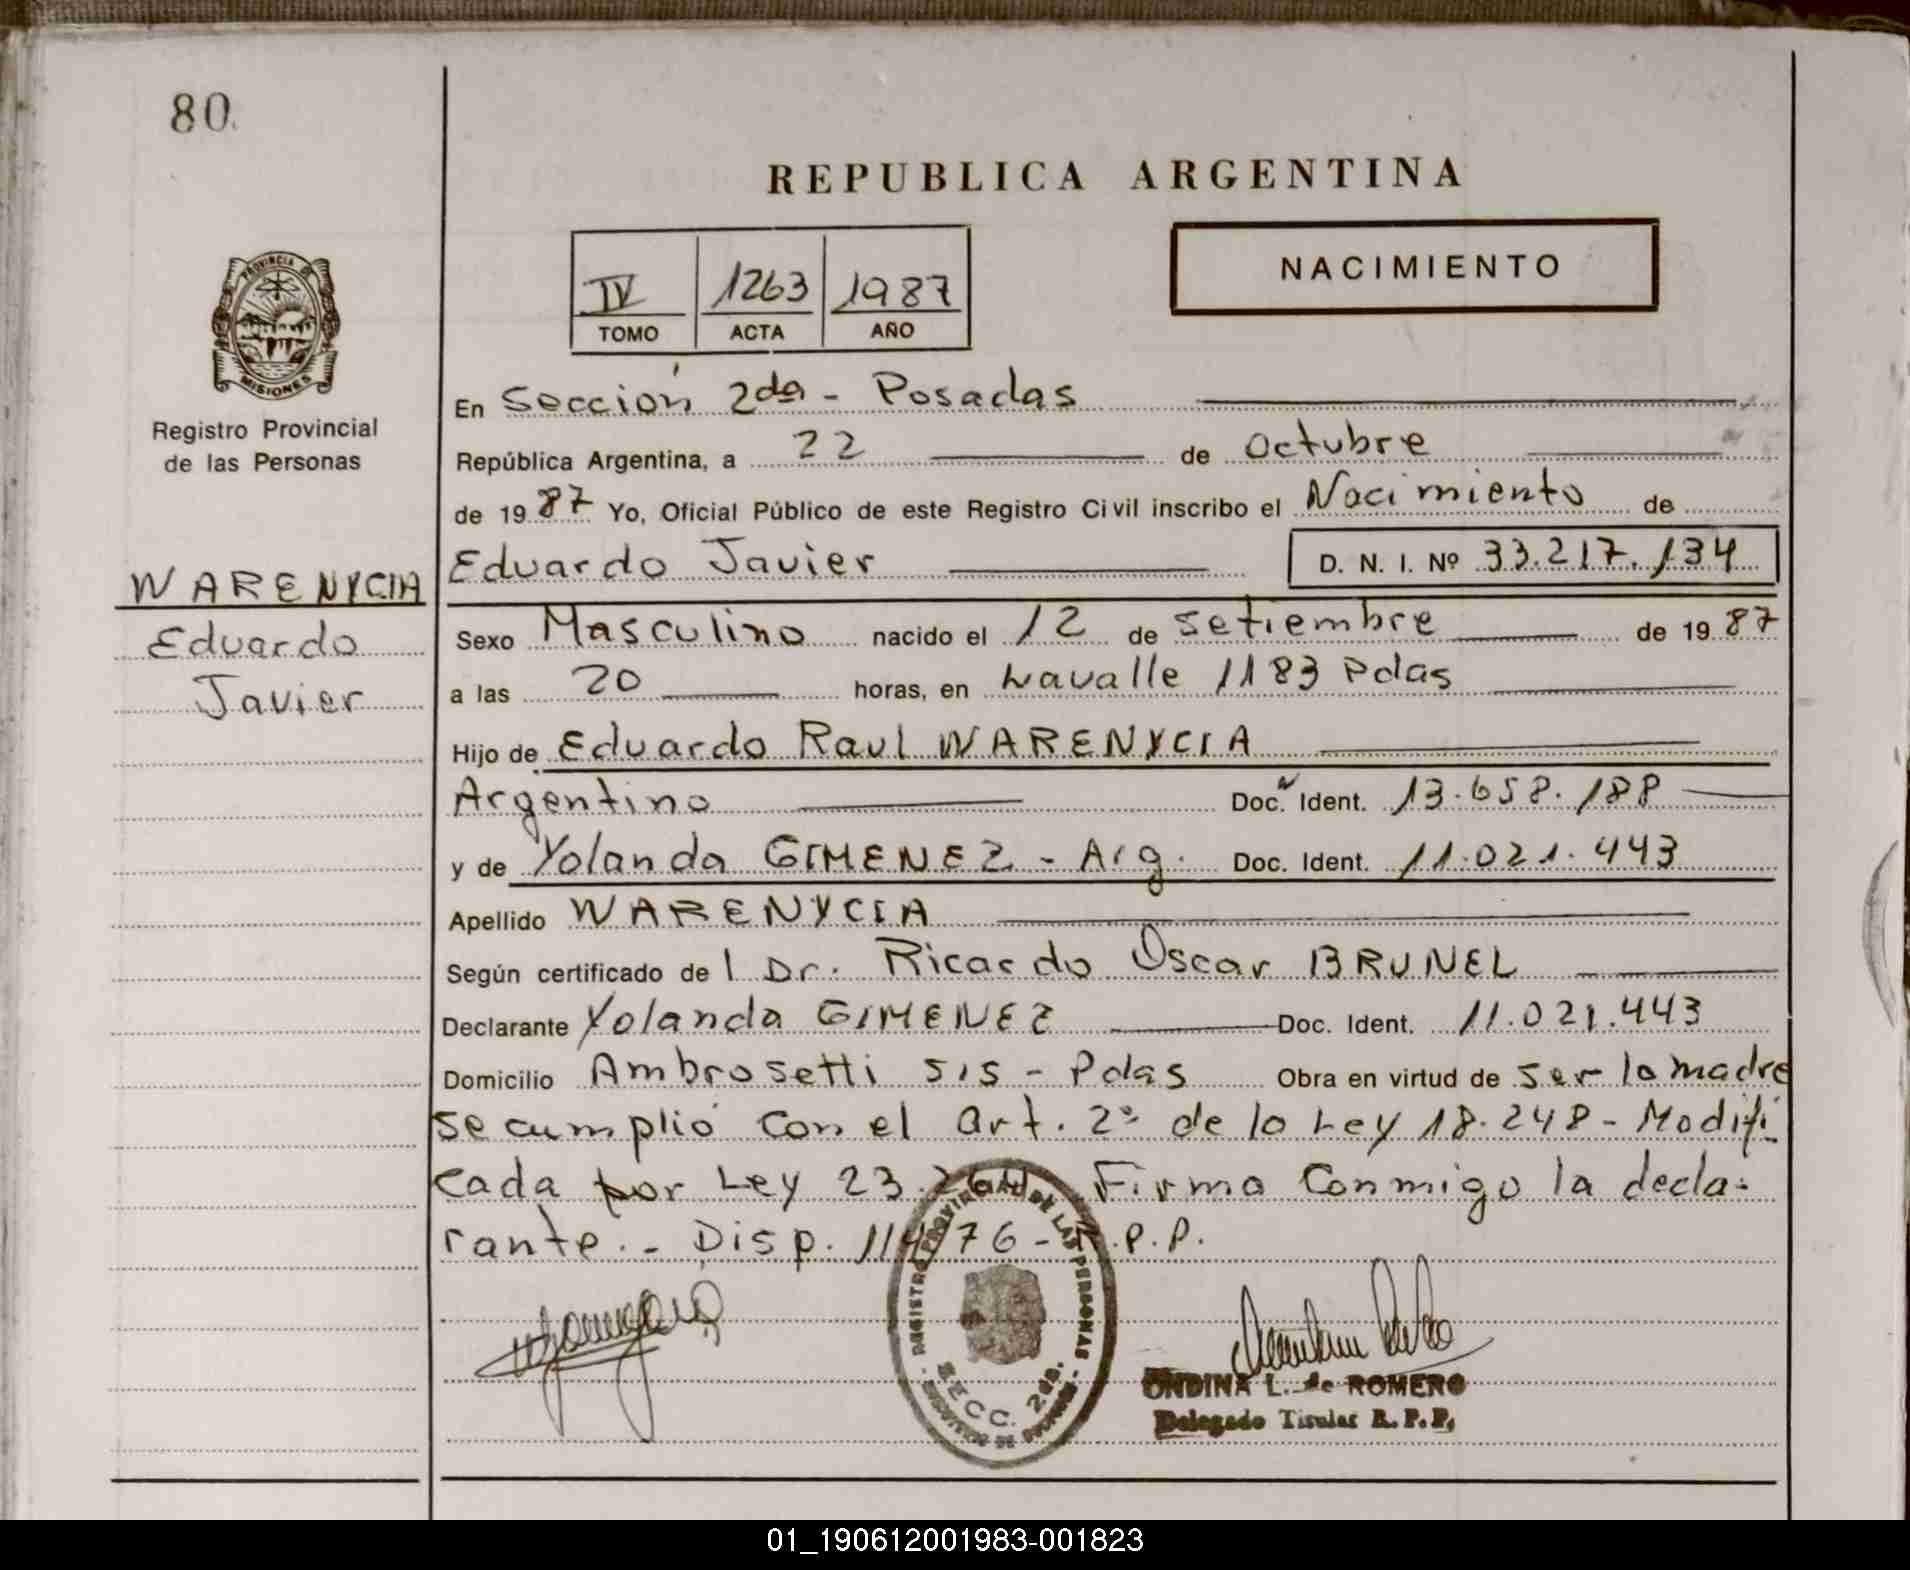 80
REPUBLICA ARGENTINA
PROVINCIA DE
MISIONES
Registro Provincial
de las Personas
IV 1263 1987
TOMO ACTA AÑO
NACIMIENTO
En Sección 2da - Posadas
República Argentina, a 22 de Octubre
de 19 87 Yo, Oficial Público de este Registro Civil inscribo el Nacimiento de
WARENYCIA
Eduardo
Javier
Eduardo Javier D. N. I. Nº 33.217.134
Sexo Masculino nacido el 12 de Setiembre de 19 87
a las 20 horas, en Lavalle 1183 Pdas
Hijo de Eduardo Raul WARENYCIA
Argentino Doc. Ident. 13.658.188
y de Yolanda GIMENEZ - Arg. Doc. Ident. 11.021.443
Apellido WARENYCIA
Según certificado de l Dr. Ricardo Oscar BRUNEL
Declarante Yolanda GIMENEZ Doc. Ident. 11.021.443
Domicilio Ambrosetti 515 - Pdas Obra en virtud de ser la madre
se cumplió con el art. 2º de la Ley 18.248 - Modifi
cada por Ley 23.264 Firma Conmigo la decla-
rante.- Disp. 114/76 - R.P.P.
REGISTRO PROVINCIAL DE LAS PERSONAS
SECC. 2da.
ONDINA L. de ROMERO
Delegado Titular R. P. P.
01_190612001983-001823